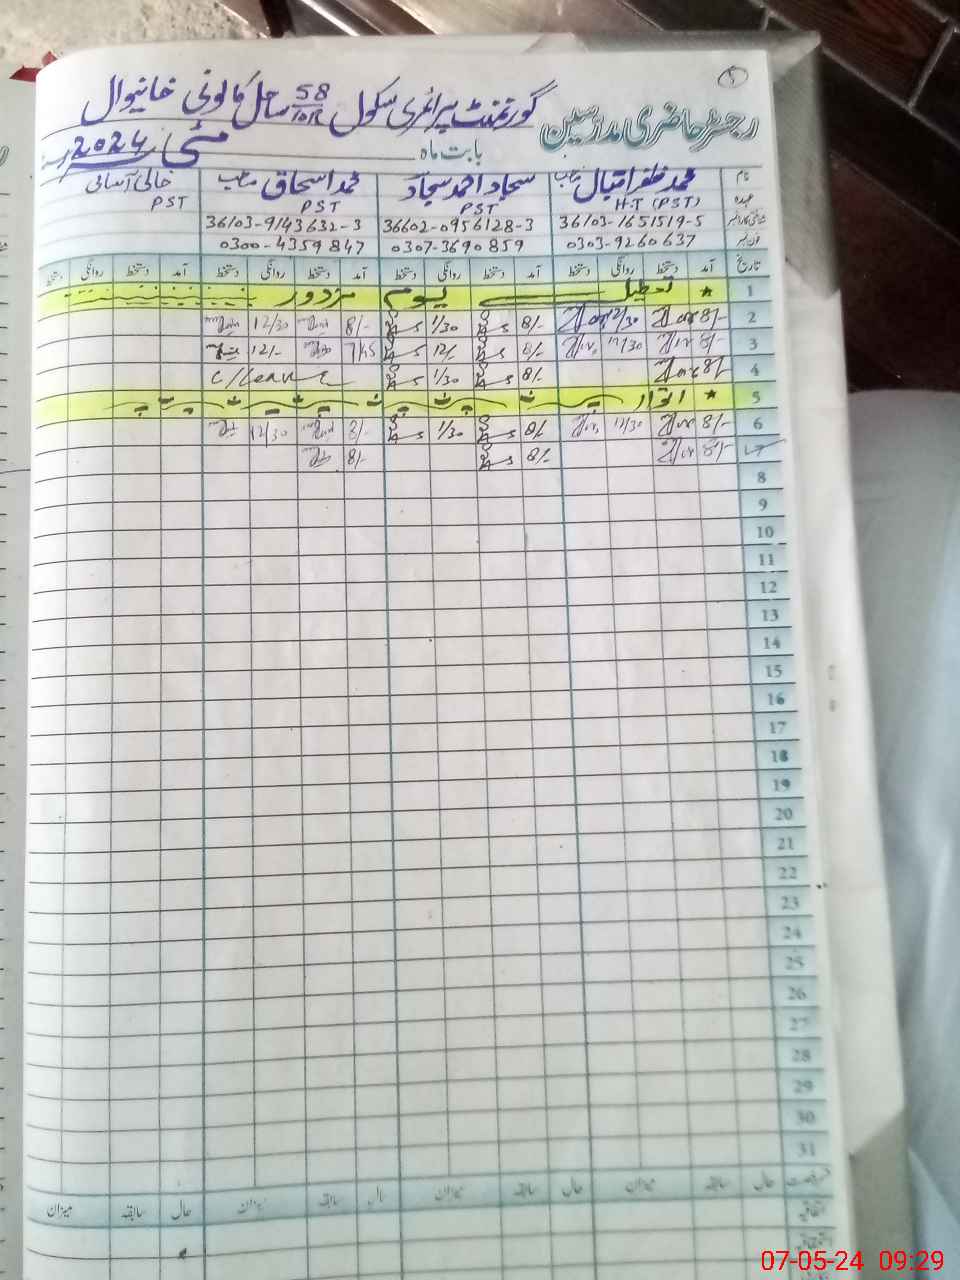 رجسٹر حاضری مدرسین گورنمنٹ پرائمری سکول 58/10R ساحل کالونی خانیوال
بابت ماہ مئی 2024
نام محمد ظفر اقبال صاحب سجاد احمد سجاد محمد اسحاق صاحب خالی آسامی
عہدہ H-T (PST) PST PST PST
36103-1651519-5 36602-0956128-3 36103-9143632-3
0303-9260637 0307-3690859 0300-4359847
تاریخ آمد دستخط روانگی دستخط آمد دستخط روانگی دستخط آمد دستخط روانگی دستخط آمد دستخط روانگی دستخط
1 * تعطیل یوم مزدور
2 8/- 12/30 8/- 1/30 8/- 12/30
3 8/- 11/30 8/- 12/- 7/45 12/-
4 8/- 8/- 1/30 C/Leave
5 * اتوار
6 8/- 11/30 8/- 1/30 8/- 12/30
8/- 8/- 8/-
8
9
10
11
12
13
14
15
16
17
18
19
20
21
22
23
24
25
26
27
28
29
30
31
حال سابقہ میزان حال سابقہ میزان حال سابقہ میزان حال سابقہ میزان
اتفاقیہ
07-05-24 09:29